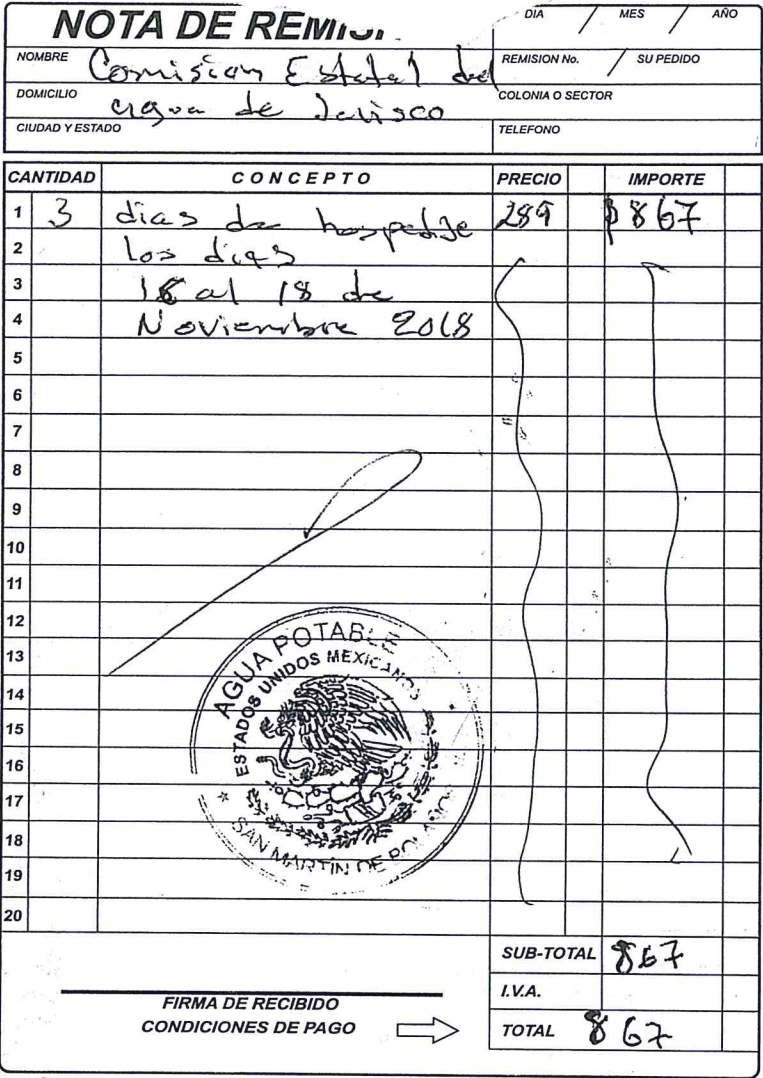 NOTA DE REMISI
DIA / MES / AÑO
NOMBRE Comision Estatal del
REMISION No. / SU PEDIDO
DOMICILIO agua de Jalisco
COLONIA O SECTOR
CIUDAD Y ESTADO
TELEFONO
CANTIDAD CONCEPTO PRECIO IMPORTE
1 3 dias de hospedaje 289 $867
2 Los dias
3 16 al 18 de
4 Noviembre 2018
5
6
7
8
9
10
11
12
13
14
15
16
17
18
19
20
AGUA POTABLE
ESTADOS UNIDOS MEXICANOS
* SAN MARTIN DE
SUB-TOTAL 867
I.V.A.
FIRMA DE RECIBIDO
CONDICIONES DE PAGO
TOTAL 867